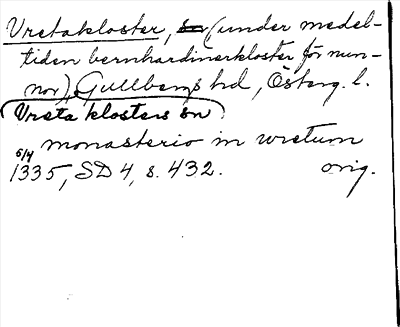 Vretakloster, sn (under medel-
tiden bernhardinerkloster för nun-
nor), Gullbergs hd, Österg. l.
(Vreta klosters sn)
monasterio in wretum
5/4
1335, SD 4, s. 432. orig.